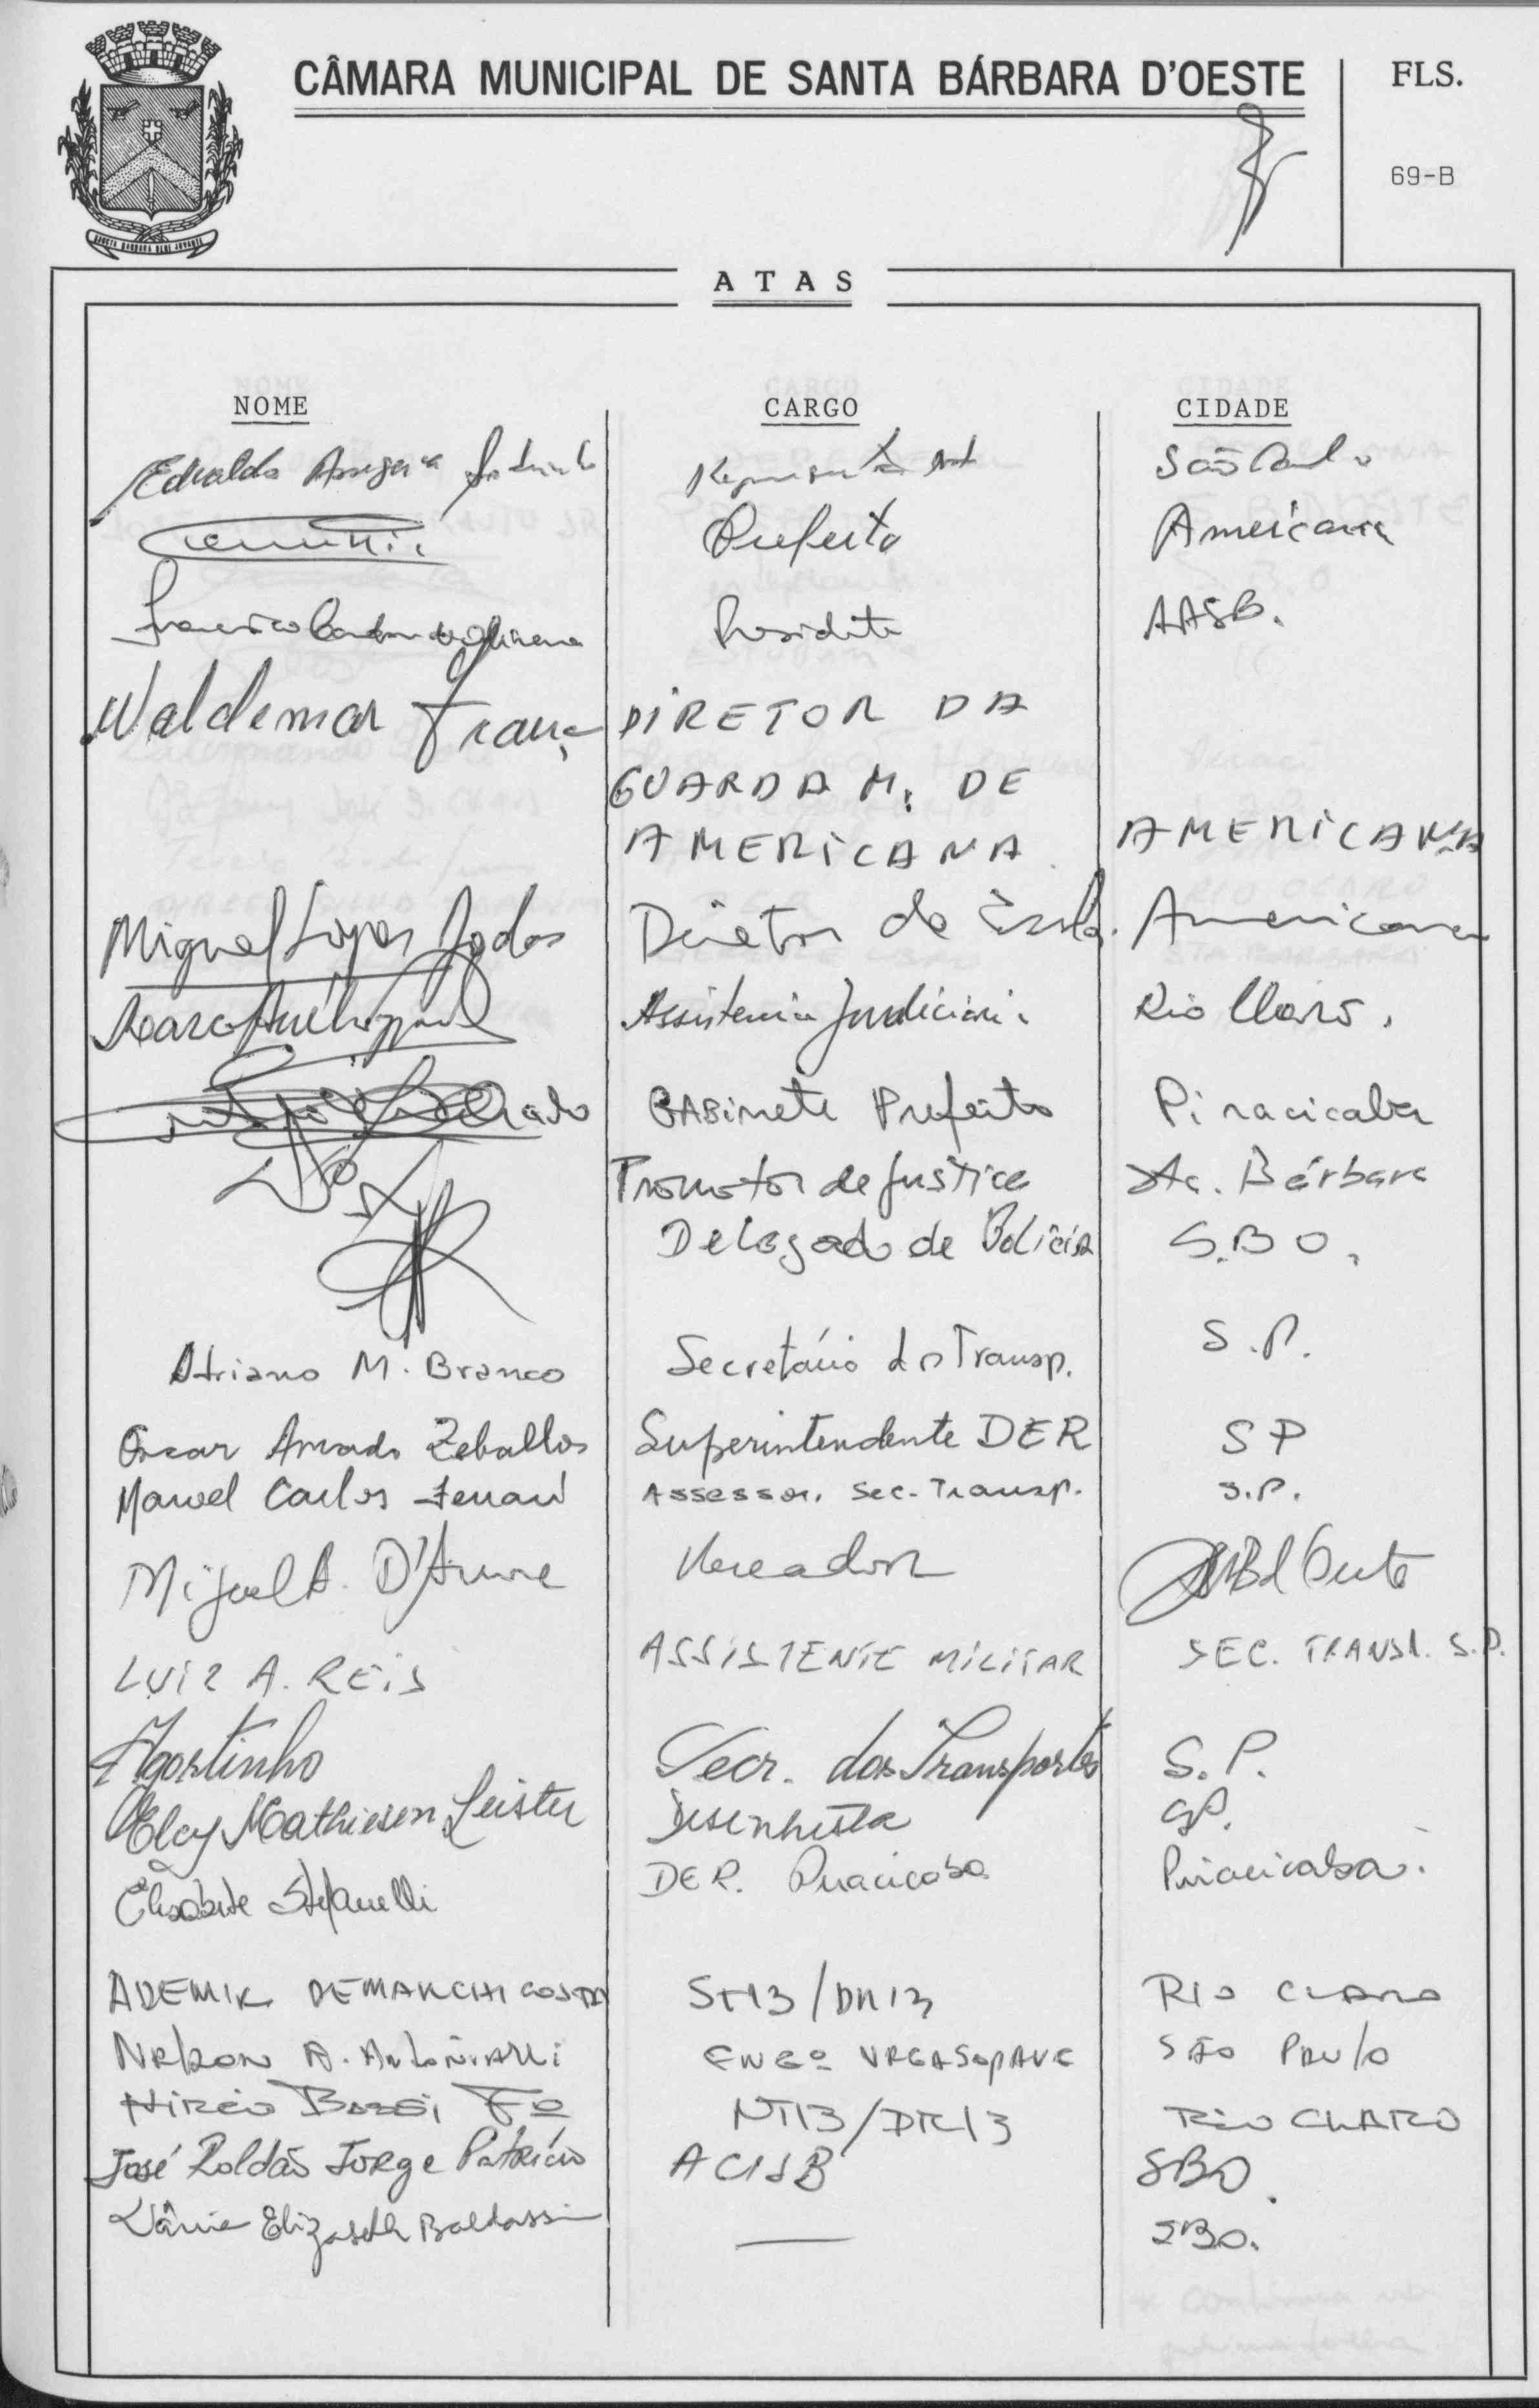 CÂMARA MUNICIPAL DE SANTA BÁRBARA D'OESTE
FLS.
69-B
ATAS
NOME CARGO CIDADE
Edvaldo São Paulo
Prefeito Americana
Francisco Presidente AASB.
Waldemar França DIRETOR DA
GUARDA M. DE
AMERICANA AMERICANA
Miguel Lopes Diretor de Escola. Americana
Assistencia Judiciari Rio Claro.
GABinete Prefeito Piracicaba
Promotor de Justiça Sta. Bárbara
Delegado de Policia S.B O.
Adriano M. Branco Secretário dos Transp. S.P.
Oscar Amado Zeballos Superintendente DER SP
Manoel Carlos Ferrari Assessor. Sec. Transp. S.P.
Miguel A. Vereador
LUIZ A. REIS ASSISTENTE MILITAR SEC. TRANSP. S.P.
Agostinho Secr. dos Transportes S.P.
Eloy Mathiesen Leister Desenhista SP.
Elisabete Stefanelli DER. Piracicaba Piracicaba.
ADEMIR DEMARCHI COSTA ST13/DR13 RIO CLARO
Nelson A. Antoniolli ENGº SÃO PAULO
Nirceu Fº NT13/DR13 RIO CLARO
José Roldão Jorge Patrício ACISB SBO.
Vânia Elizabeth Baldassin — SBO.